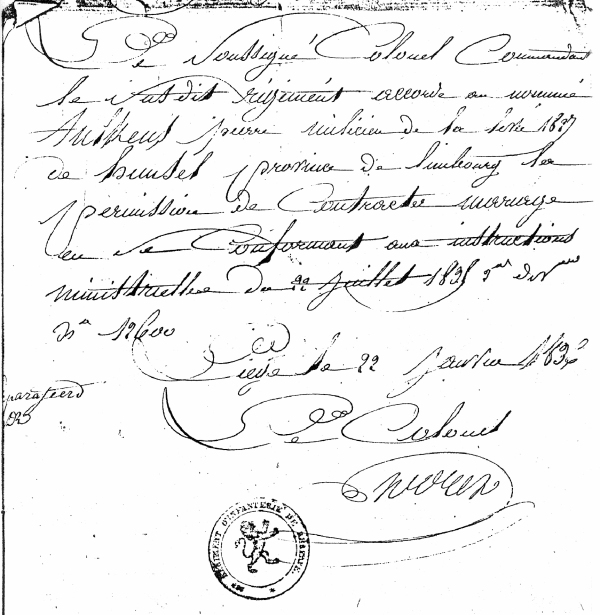 Le Soussigné Colonel Commandan
le susdit régiment accorde au nommé
pierre milicien de la levée 1837
de hunsel province de limbourg la
permission de Contracter mariage
en se Conformant aux instructions
ministrielles du 22 juillet 183
Nº 12600
Liege le 22 janvier 183
parafeerd
Le Colonel
REGIMENT D'INFANTERIE DE